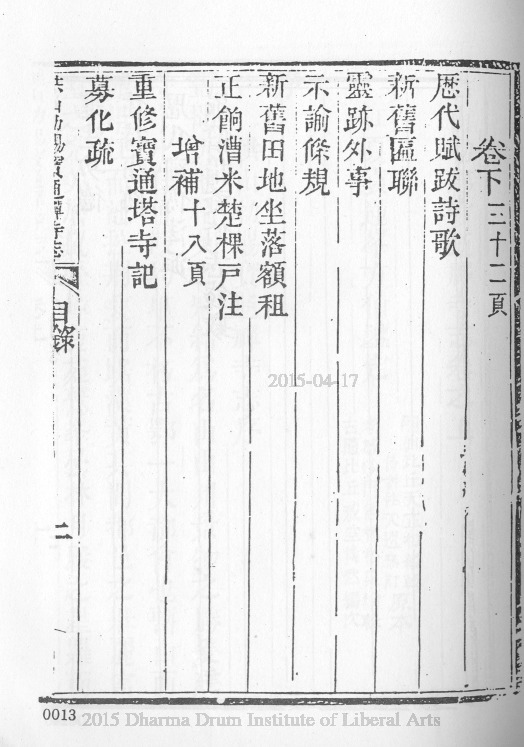 卷下三十二頁
歷代賦跋詩歌
新舊匾聯
靈跡外事
示諭條規
新舊田地坐落額租
正餉漕米楚棵戸注
增補十八頁
重修寶通塔寺記
募化疏
洪山勅賜寶通禪寺志
目錄
二
2015-04-17
0013
2015 Dharma Drum Institute of Liberal Arts